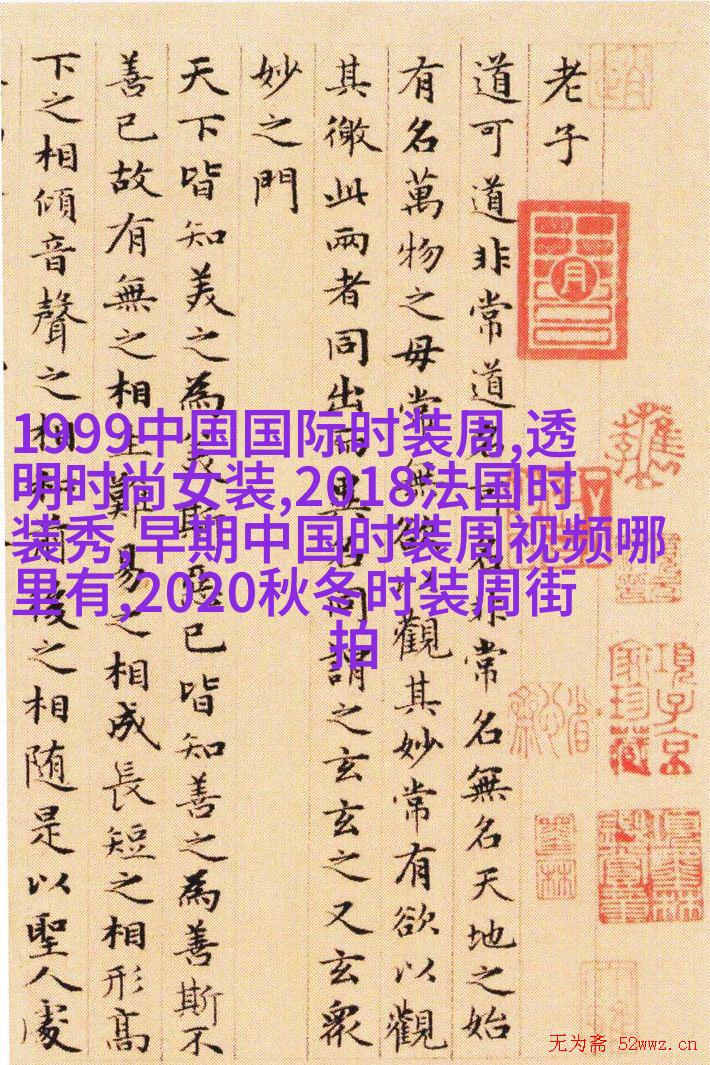 老子
道可道非常道名可名非常名無名天地之始
有名萬物之母常無欲以觀其妙常有欲以觀
其徼此兩者同出而異名同謂之玄玄之又玄衆
妙之門
天下皆知美之為美斯惡已皆知善之為善斯不
善已故有無之相生難易之相成長短之相形高
下之相傾音聲之相和前後之相随是以聖人處
項子京家珍藏
1999中国国际时装周,透
明时尚女装,2018法国时
装秀,早期中国时装周视频哪
里有,2020秋冬时装周街
拍
无为斋 52wwz.cn